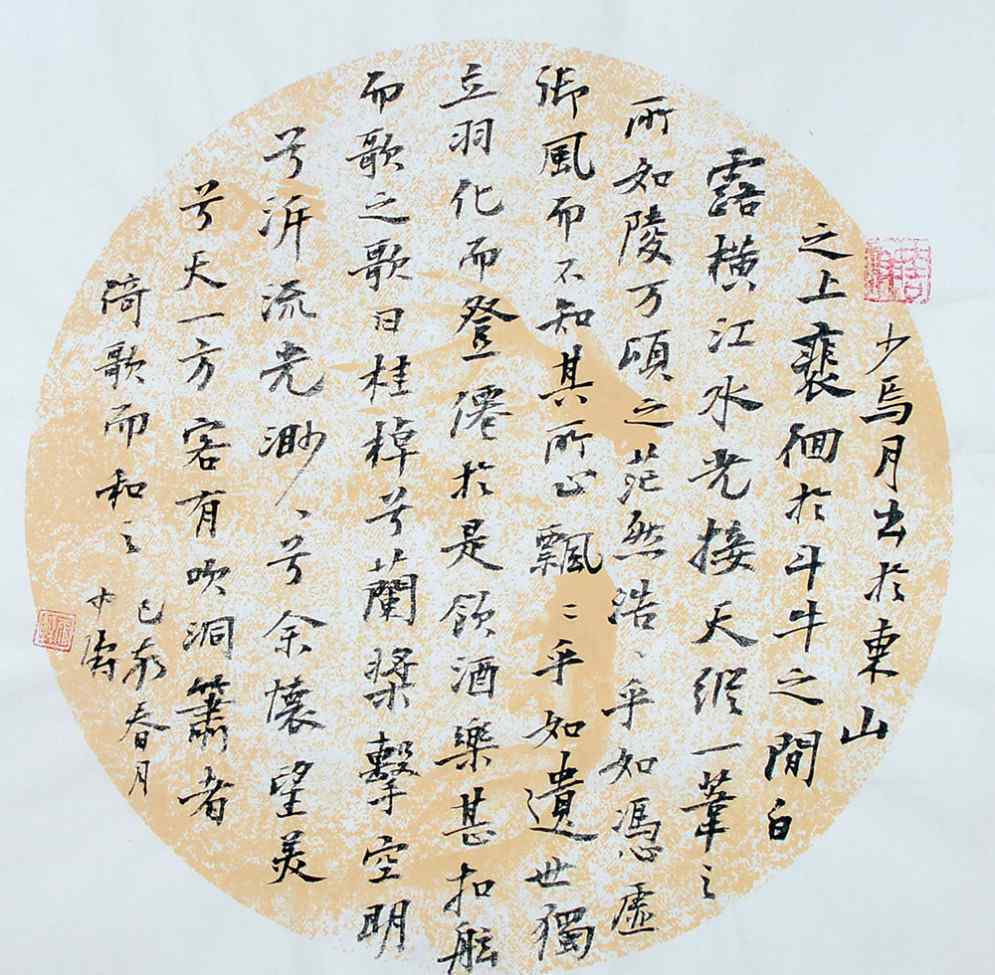 少焉月出於東山
之上裴徊於斗牛之間白
露橫江水光接天縱一葦之
所如陵万頃之茫然浩、乎如馮虛
御風而不知其所止飄〻乎如遺世獨
立羽化而登僊於是飲酒樂甚扣舷
而歌之歌曰桂棹兮蘭槳擊空明
兮泝流光渺、兮余懷望美
兮天一方客有吹洞簫者
倚歌而和之
己亥春月